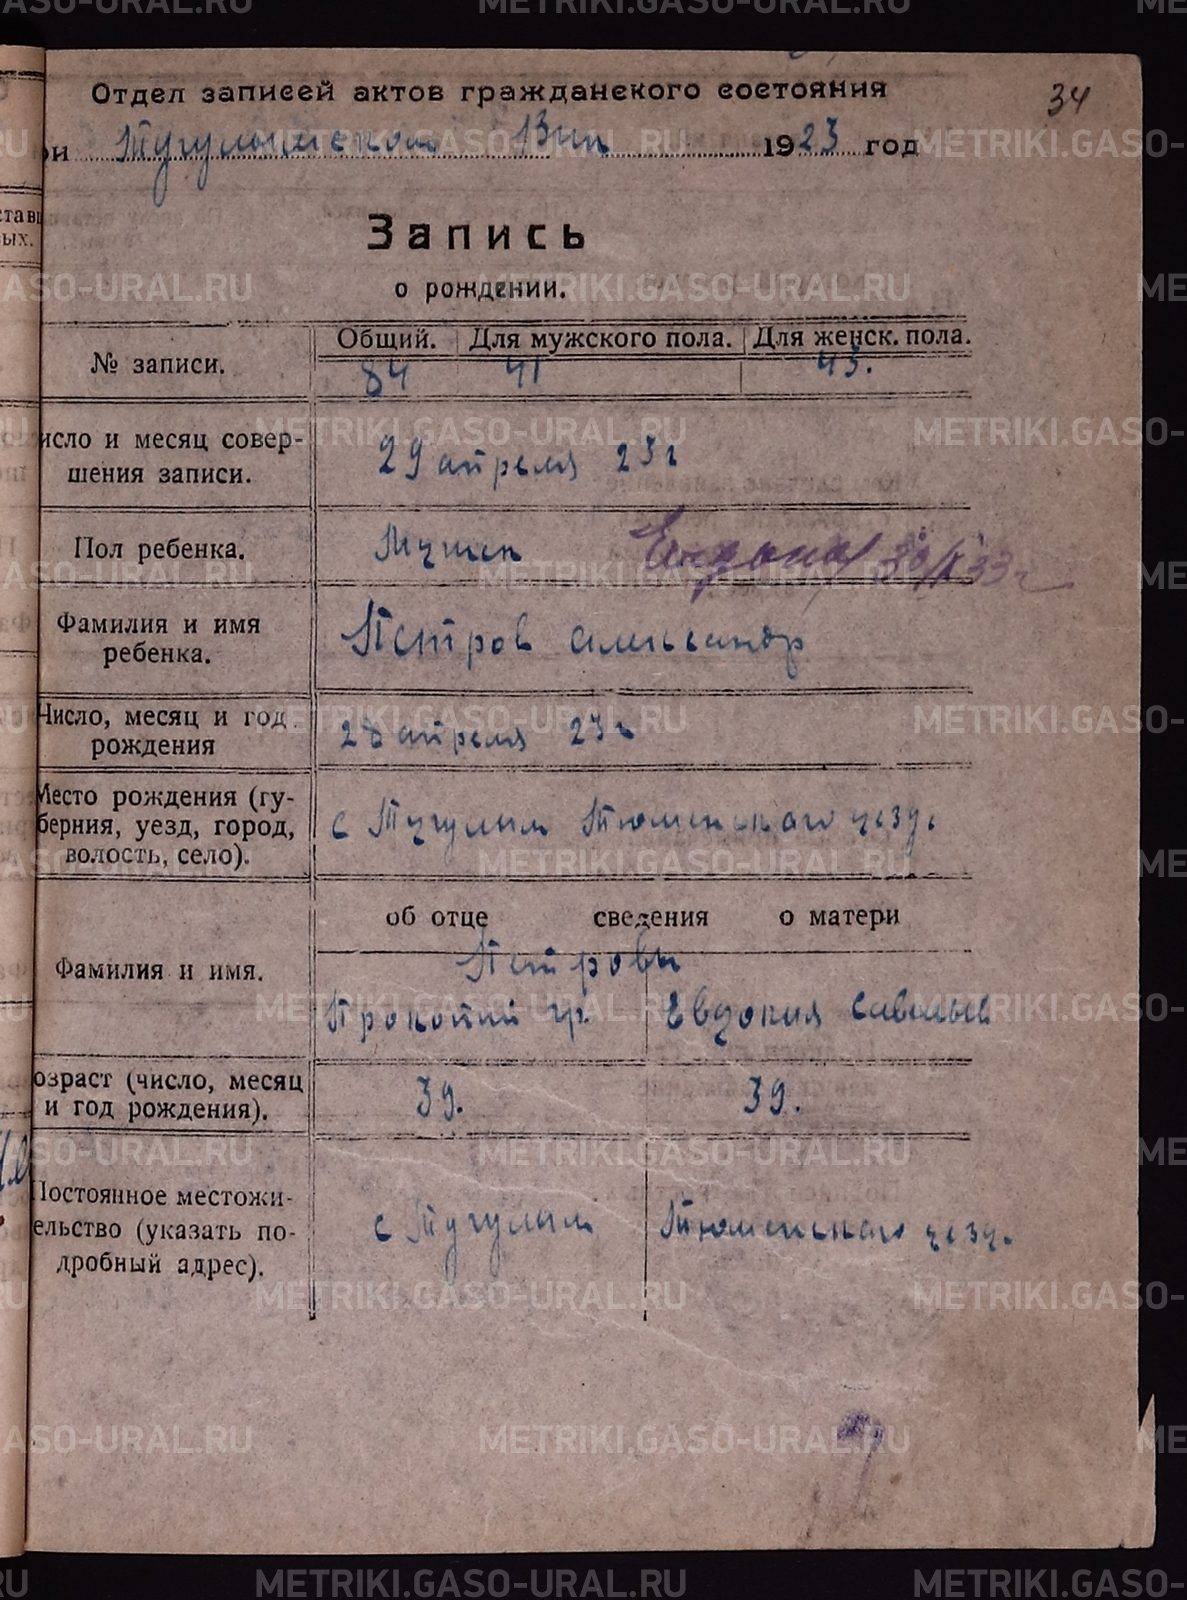 METRIKI.GASO-URAL.RU
Отдел записей актов гражданского состояния
34
ри Тугулымском Вик 1923 год
Запись
о рождении.
№ записи.
Общий. Для мужского пола. Для женск. пола.
84 41 43.
исло и месяц совер-
шения записи.
29 апреля 23 г
Пол ребенка.
Мужск
33 г
Фамилия и имя
ребенка.
Петров Александр
Число, месяц и год
рождения
28 апреля 23 г
Место рождения (гу-
берния, уезд, город,
волость, село).
с Тугулым Тюменскаго уезд.
об отце сведения о матери
Фамилия и имя.
Петровы
Прокопий гр. Евдокия Савельев
озраст (число, месяц
и год рождения).
39. 39.
Постоянное местожи-
ельство (указать по-
дробный адрес).
с Тугулым Тюменскаго уезд.